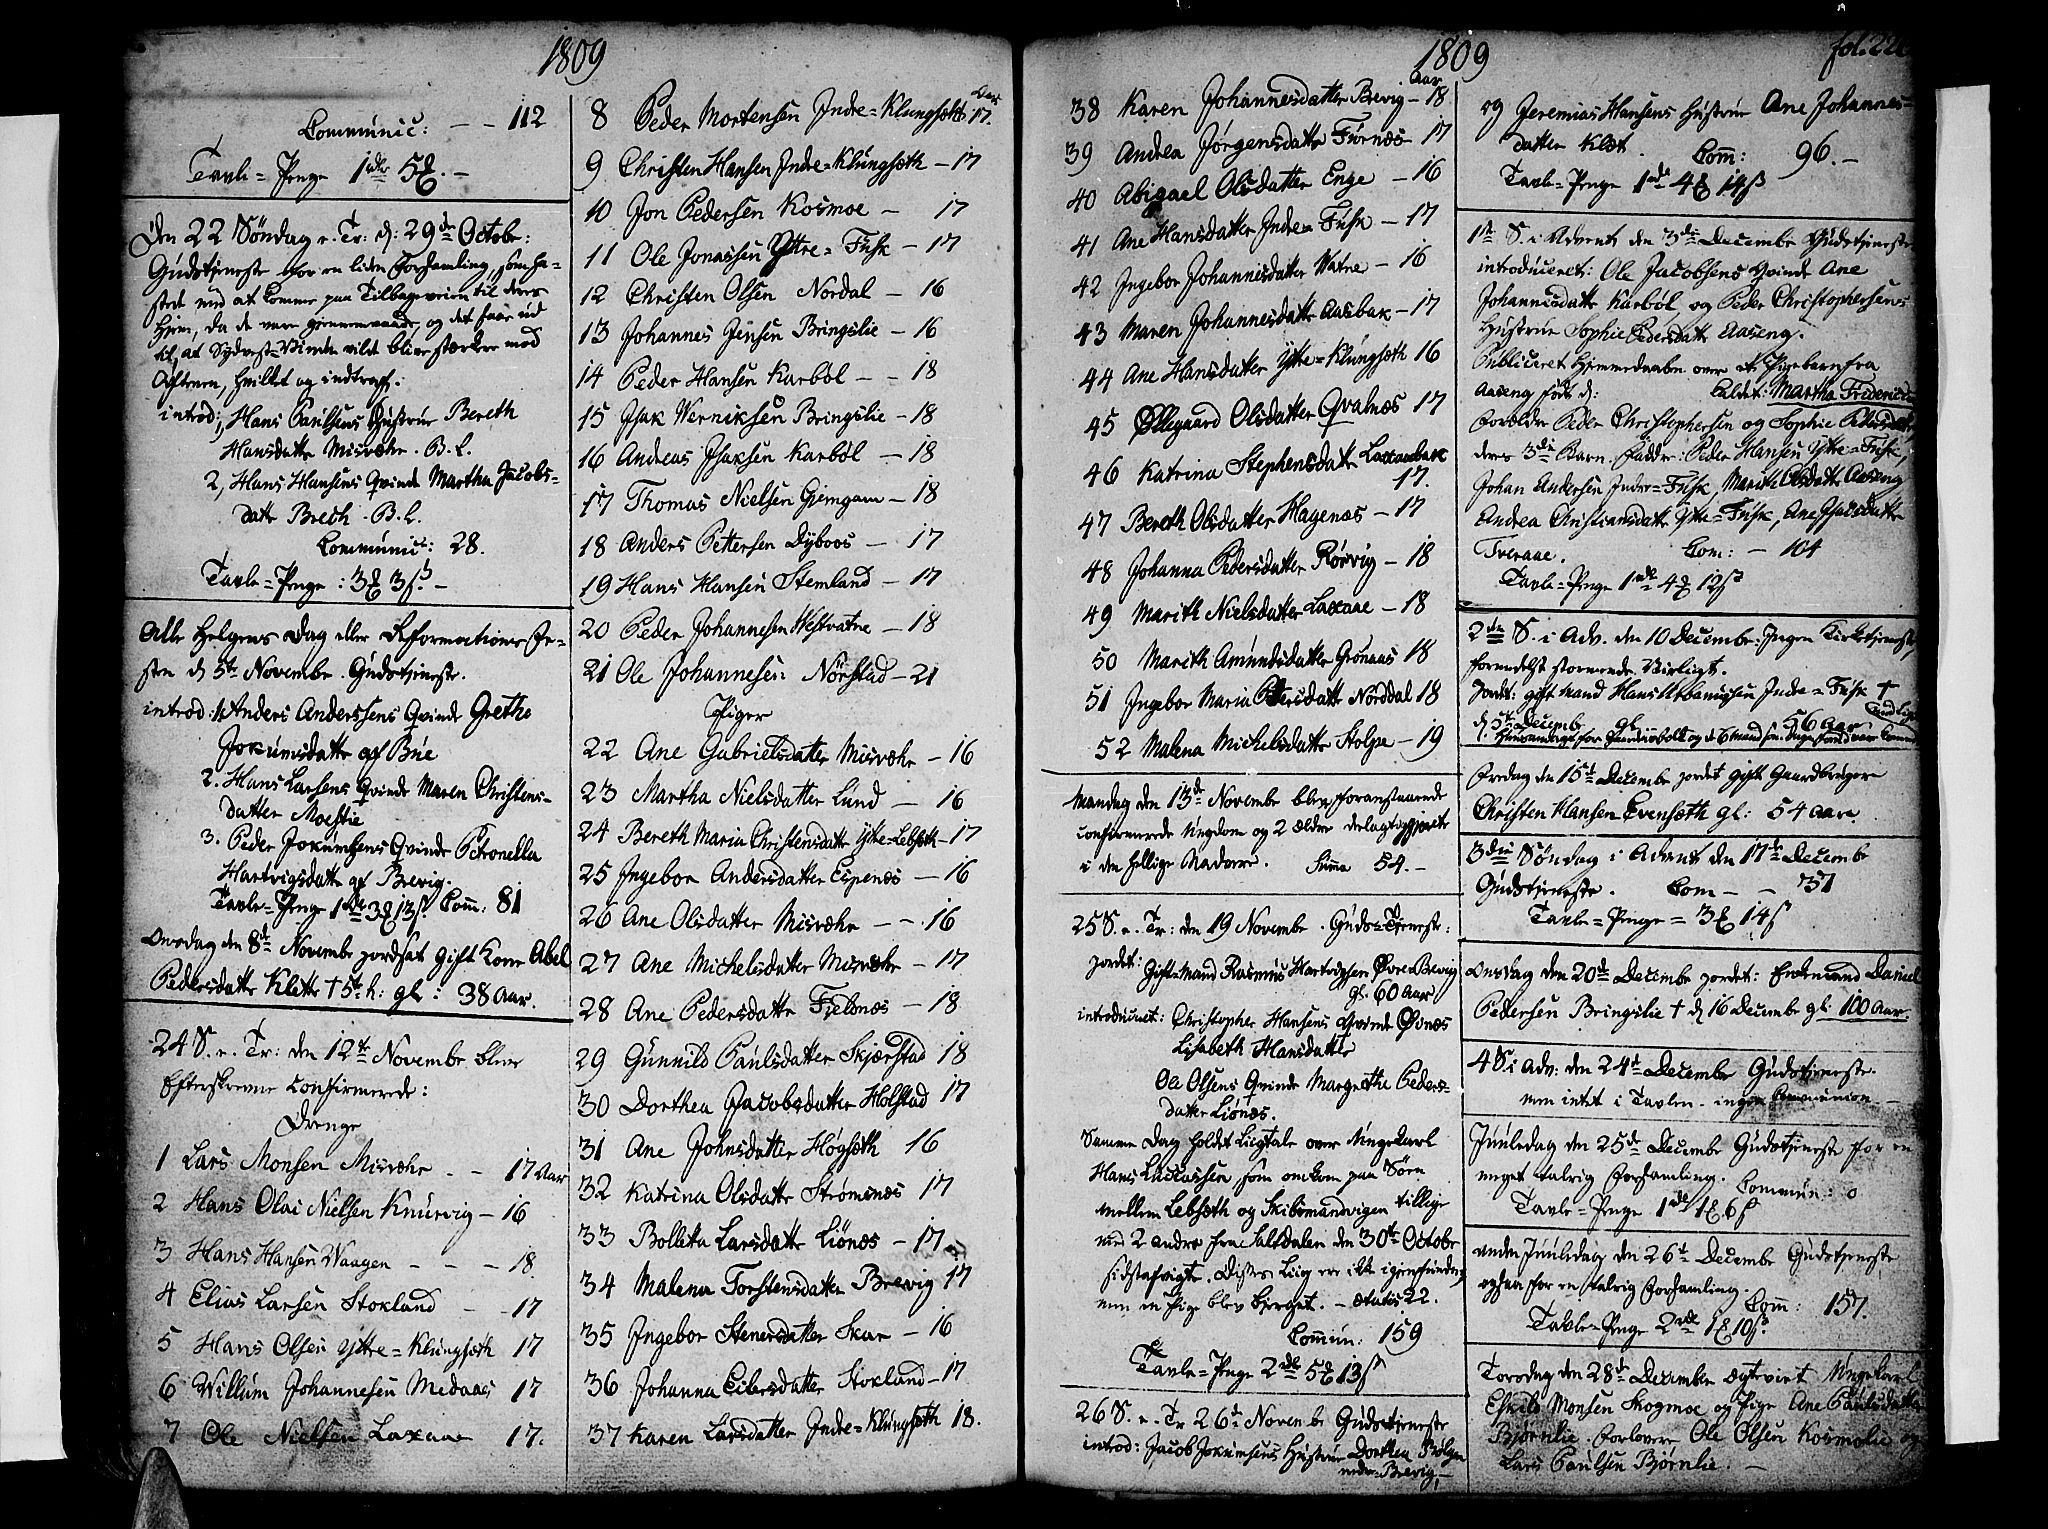 1809
Communic: - - 112
Tavle=Penge 1 rdlr 5 . -
Den 22 Söndag e. Tr: d: 29de Octobr:
Gudstjeneste for en liden Forsamling, som ha-
stede med at komme paa Tilbageveien til deres
Hjem, da de vare gjennemvaade, og det saae ud
til, at Sydvest=Vinden vilde blive stærkere mod
Aftenen, hvilket og indtraff.
introd: 1, Hans Paulsens Hustrue Bereth
Hansdatter Misvæhr. B. L.
2, Hans Hansens Qvinde Martha Jacobs-
datter Breth. B. L.
Communic: 28.
Tavle=Penge: 3 3 s. -
Alle Helgens Dag eller Reformations Fe-
sten d 5te Novembr. Gudstjeneste.
introd: 1. Anders Anderssens Qvinde Grethe
Jokumsdatter af Bue
2. Hans Larsens Qvinde Maren Christens-
datter Moestie
3. Peder Jokumsens Qvinde Petronella
Hartvigsdatter af Brevig.
Tavle=Penge 1 rdl 3 13 s. Com: 81
Onsdag den 8de Novembr jordsat gift Kone Abel
Pedersdatter Klette † 5te h: gl: 38 Aar.
24 S. e. Tr: den 12te Novembr bleve
Efterskrevne Confirmerede:
Drenge
1 Lars Monsen Misvæhr. - - 17 Aar
2 Hans Olai Nielsen Knurvig - 16
3 Hans Hansen Vaagen - - - 18.
4 Elias Larsen Stokland - - 17
5 Hans Olsen Yttre=Klungsæth 17
6 Willum Johannesen Medaas 17
7 Ole Nielsen Laxaae 17.
8 Peder Mortensen Indre=Klungsæth Aar 17.
9 Christen Hansen Indre=Klungsæth - 17
10 Jon Pedersen Kosmoe - 17
11 Ole Jonassen Yttre=Fusk - 17
12 Christen Olsen Nordal - 16
13 Johannes Jensen Bringslie - 16
14 Peder Hansen Karböl - - 18
15 Isak Werniksen Bringslie - 18
16 Andreas Isaksen Karböl - 18
17 Thomas Nielsen Gjemgam - 18
18 Anders Pettersen Dyboos - 17
19 Hans Hansen Stemland - 17
20 Peder Johannesen Westvatne - 18
21 Ole Johannesen Nörstad - 21
Piger
22 Ane Gabrielsdatter Misvæhr - 16
23 Martha Nielsdatter Lund - 16
24 Bereth Maria Christensdatter Yttre=Lebsæth - 17
25 Ingebor Andersdatter Espenæs - 16
26 Ane Olsdatter Misvæhr - - 16
27 Ane Michelsdatter Misvæhr - 17
28 Ane Pedersdatter Fielnæs - 18
29 Gunnild Paulsdatter Skjærstad 18
30 Dorthea Jsacobsdatter Holstad 17
31 Ane Johnsdatter Högsæth 16
32 Katrina Olsdatter Strömsnæs 17
33 Bolleta Larsdatter Liönæs - 17
34 Malena Torstensdatter Brevig 17
35 Ingebor Stenersdatter Skar - 16
36 Johanna Eilersdatter Stokland - 17
37 Karen Larsdatter Indre=Klungsæth 18.
1809
fol. 22
38 Karen Johannesdatter Brevig - Aar 18
39 Andrea Jörgensdatter Fornæs 17
40 Abigael Olsdatter Enge - 16
41 Ane Hansdatter Indre=Fusk - 17
42 Ingebor Johannesdatter Vatne - 16
43 Maren Johannesdatter Aasbak - 17
44 Ane Hansdatter Yttre=Klungsæth 16
45 Öllegaard Olsdatter Qvalnæs 17
46 Katrina Stephensdatter Laxaabak
17.
47 Bereth Olsdatter Hagenæs - 17
48 Johanna Pedersdatter Rörvig - 18
49 Marith Nielsdatter Laxaae - 18
50 Marith Amundsdatter Grönaas 18
51 Ingebor Maria Petersdatter Norddal 18
52 Malena Michelsdatter Stolpe - 19
Mandag den 13de Novembr blev foranstaaende
confirmerede Ungdom og 2 ældre deelagtiggjorte
i den hellige Nadvere. Summa 54. -
25 S. e. Tr: den 19 Novembr. Guds=Tjeneste:
jordet: Gift=Mand Rasmus Hartvigsen Övre Brevig
gl. 60 Aar
introduceret: Christopher Hansens Qvinde Öynæs
Lisabeth Hansdatter
Ole Olsens Qvinde Margrethe Peders-
datter Liönæs.
Samme Dag holdet Liigtale over Ungekarl
Hans Lucassen, som omkom paa Söen
mellem Lebsæth og Skibsmandvigen tillige
med 2 andre fra Saltdalen den 30te October
sidstafvigte. Disses Liig ere ikke igjenfundne,
men en Pige blev bjerget. - ætatis 22.
Commun: 159
Tavle=Penge 2 rdl 5 13 s
26 S. e. Tr 26de Novembr Gudstjeneste
introd: Jacob Jokumsens Hustrue Dorthea
nedre=Brevig, -
59 Jeremias Hansens Hustrue Ane Johannes=
datter Klæt. Com: 96. -
Tavle=Penge 1 rdl 4 14 s
1te S. i Advent den 3die Decembr Gudstjeneste
introduceret: Ole Jacobsens Qvinde Ane
Johannisdatter Karböl og Peder Christophersens
Hustrue Sophie Pedersdatter Aaseng.
Publiceret Hjemmedaaben over et Pigebarn fra
Aaseng födt d: Caldet: Martha Frideric
Forældre Peder Christophersen og Sophie Pedersdatter,
deres 3die Barn. Faddre: Peder Hansen Yttre=Fusk,
Johan Andersen Indre=Fusk, Marith Olsdatter Aaseng
Andrea Christiansdatter Yttre=Fusk, Ane Isacsdatter
Tveraae. Com: - 104
Tavle=Penge 1 rdl 4 12 s
2den S. i Adv. den 10 Decembr: Ingen Kirketjeneste,
formedelst stormende Veirligt.
Jordet: gift Mand Hans Urbanussen Indre=Fusk †
d 5te Decembr gl. 56 Aar
Fredag den 15de Decembr jordet gift Gaardbruger
Christen Hansen Evensæth gl: 54 Aar.
3die Söndag i Advent den 17de Decembr
Gudstjeneste. Com - - 37
Tavle=Penge = 3 14 s
Onsdag den 20de Decembr jordet: Enkemand Daniel
Pedersen Bringslie † d 16 Decembr gl: 100 Aar.
4 S i Adv: den 24de Decembr Gudstjeneste.
men intet i Tavlen. ingen Communion -
Juuledag den 25de Decembr Gudstjeneste for en
meget talrig Forsamling. Commun: 0
Tavle=Penge 1 rdl 1 6 s
anden Juuledag den 26de Decembr Gudstjeneste
ogsaa for en talrig Forsamling.
Com: 157.
Tavle=Penge 2 rdl 1 10 s.
Torsdag den 28de Decembr egteviet Ungekarl
Eskild Monsen Skogmoe og Pige Ane Paulsdatter
Björnlie. Forlovere Ole Olsen Kosmolie og
Lars Paulsen Björnlie. -